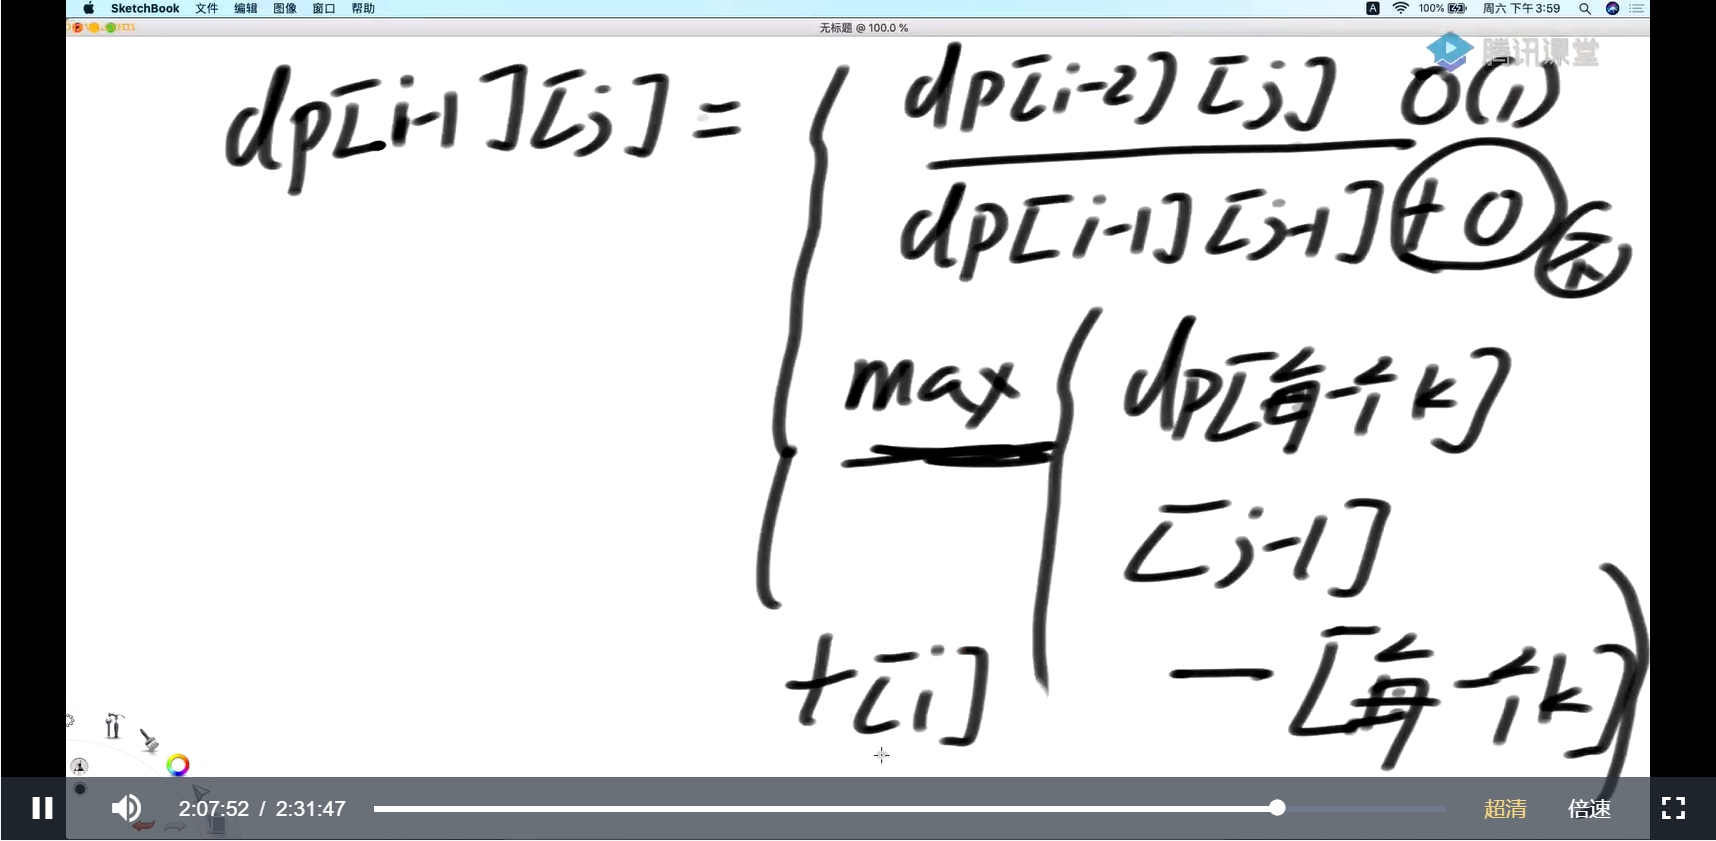 SketchBook 文件 编辑 图像 窗口 帮助
A 100% 周六 下午3:59
无标题 @ 100.0 %
腾讯课堂
dp[i-1][j] =
dp[i-2][j] O(1)
dp[i-1][j-1] + 0
max
dp[每一个k]
[j-1]
- [每一个k]
+[i]
2:07:52 / 2:31:47
超清 倍速